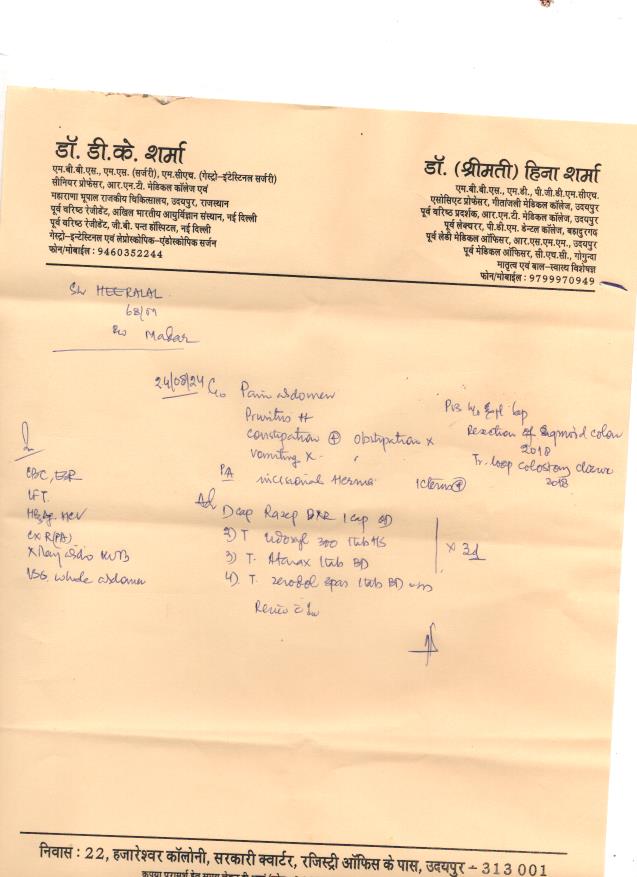 डॉ. डी.के. शर्मा
एम.बी.बी.एस., एम.एस. (सर्जरी), एम.सीएच. (गेस्ट्रो-इंटेस्टिनल सर्जरी)
सीनियर प्रोफेसर, आर.एन.टी. मेडिकल कॉलेज एवं
महाराणा भूपाल राजकीय चिकित्सालय, उदयपुर, राजस्थान
पूर्व वरिष्ठ रेजीडेंट, अखिल भारतीय आयुर्विज्ञान संस्थान, नई दिल्ली
पूर्व वरिष्ठ रेजीडेंट, जी.बी. पन्त हॉस्पिटल, नई दिल्ली
गेस्ट्रो-इन्टेस्टिनल एवं लेप्रोस्कोपिक-एंडोस्कोपिक सर्जन
फोन/मोबाईल : 9460352244
डॉ. (श्रीमती) हिना शर्मा
एम.बी.बी.एस., एम.डी., पी.जी.डी.एम.सीएच.
एसोसिएट प्रोफेसर, गीतांजली मेडिकल कॉलेज, उदयपुर
पूर्व वरिष्ठ प्रदर्शक, आर.एन.टी. मेडिकल कॉलेज, उदयपुर
पूर्व लेक्चरर, पी.डी.एम. डेन्टल कॉलेज, बहादुरगढ़
पूर्व लेडी मेडिकल ऑफिसर, आर.एस.एम.एम., उदयपुर
पूर्व मेडिकल ऑफिसर, सी.एच.सी., गोगुन्दा
मातृत्व एवं बाल-स्वास्थ्य विशेषज्ञ
फोन/मोबाईल : 9799970949
HEERALAL
68/M
24/08/24 C/o Pain abdomen
Pruritis
Constipation + Obstipation x
Vomiting x
PA incisional Hernia Icterus +
Resection of Sigmoid colon
2018
Tr. loop colostomy closure
2018
CBC, ESR
LFT
HBsAg, HCV
CXR (PA)
X Ray abdo KUB
USG whole abdomen
Adv
1) cap Razep DSR 1 cap BD
2) T Udoxyl 300 1 tab HS
3) T. Atarax 1 tab BD
4) T. zerodol spas 1 tab BD
x 3d
Review c
निवास : 22, हजारेश्वर कॉलोनी, सरकारी क्वार्टर, रजिस्ट्री ऑफिस के पास, उदयपुर - 313 001